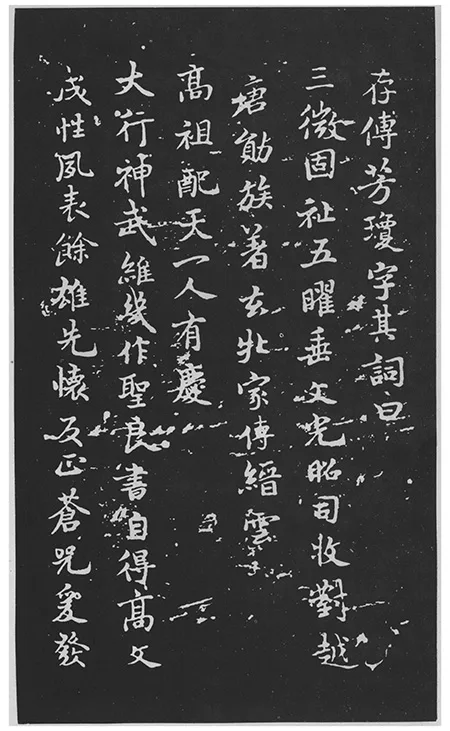 存傳芳瓊字其詞曰
三微固祉五曜垂文光昭司牧對越
塘勛族著玄牝家傳縉雲
高祖配天一人有慶
大行神武維幾作聖良書自得高文
成性夙表餘雄先懷反正蒼兕爰發